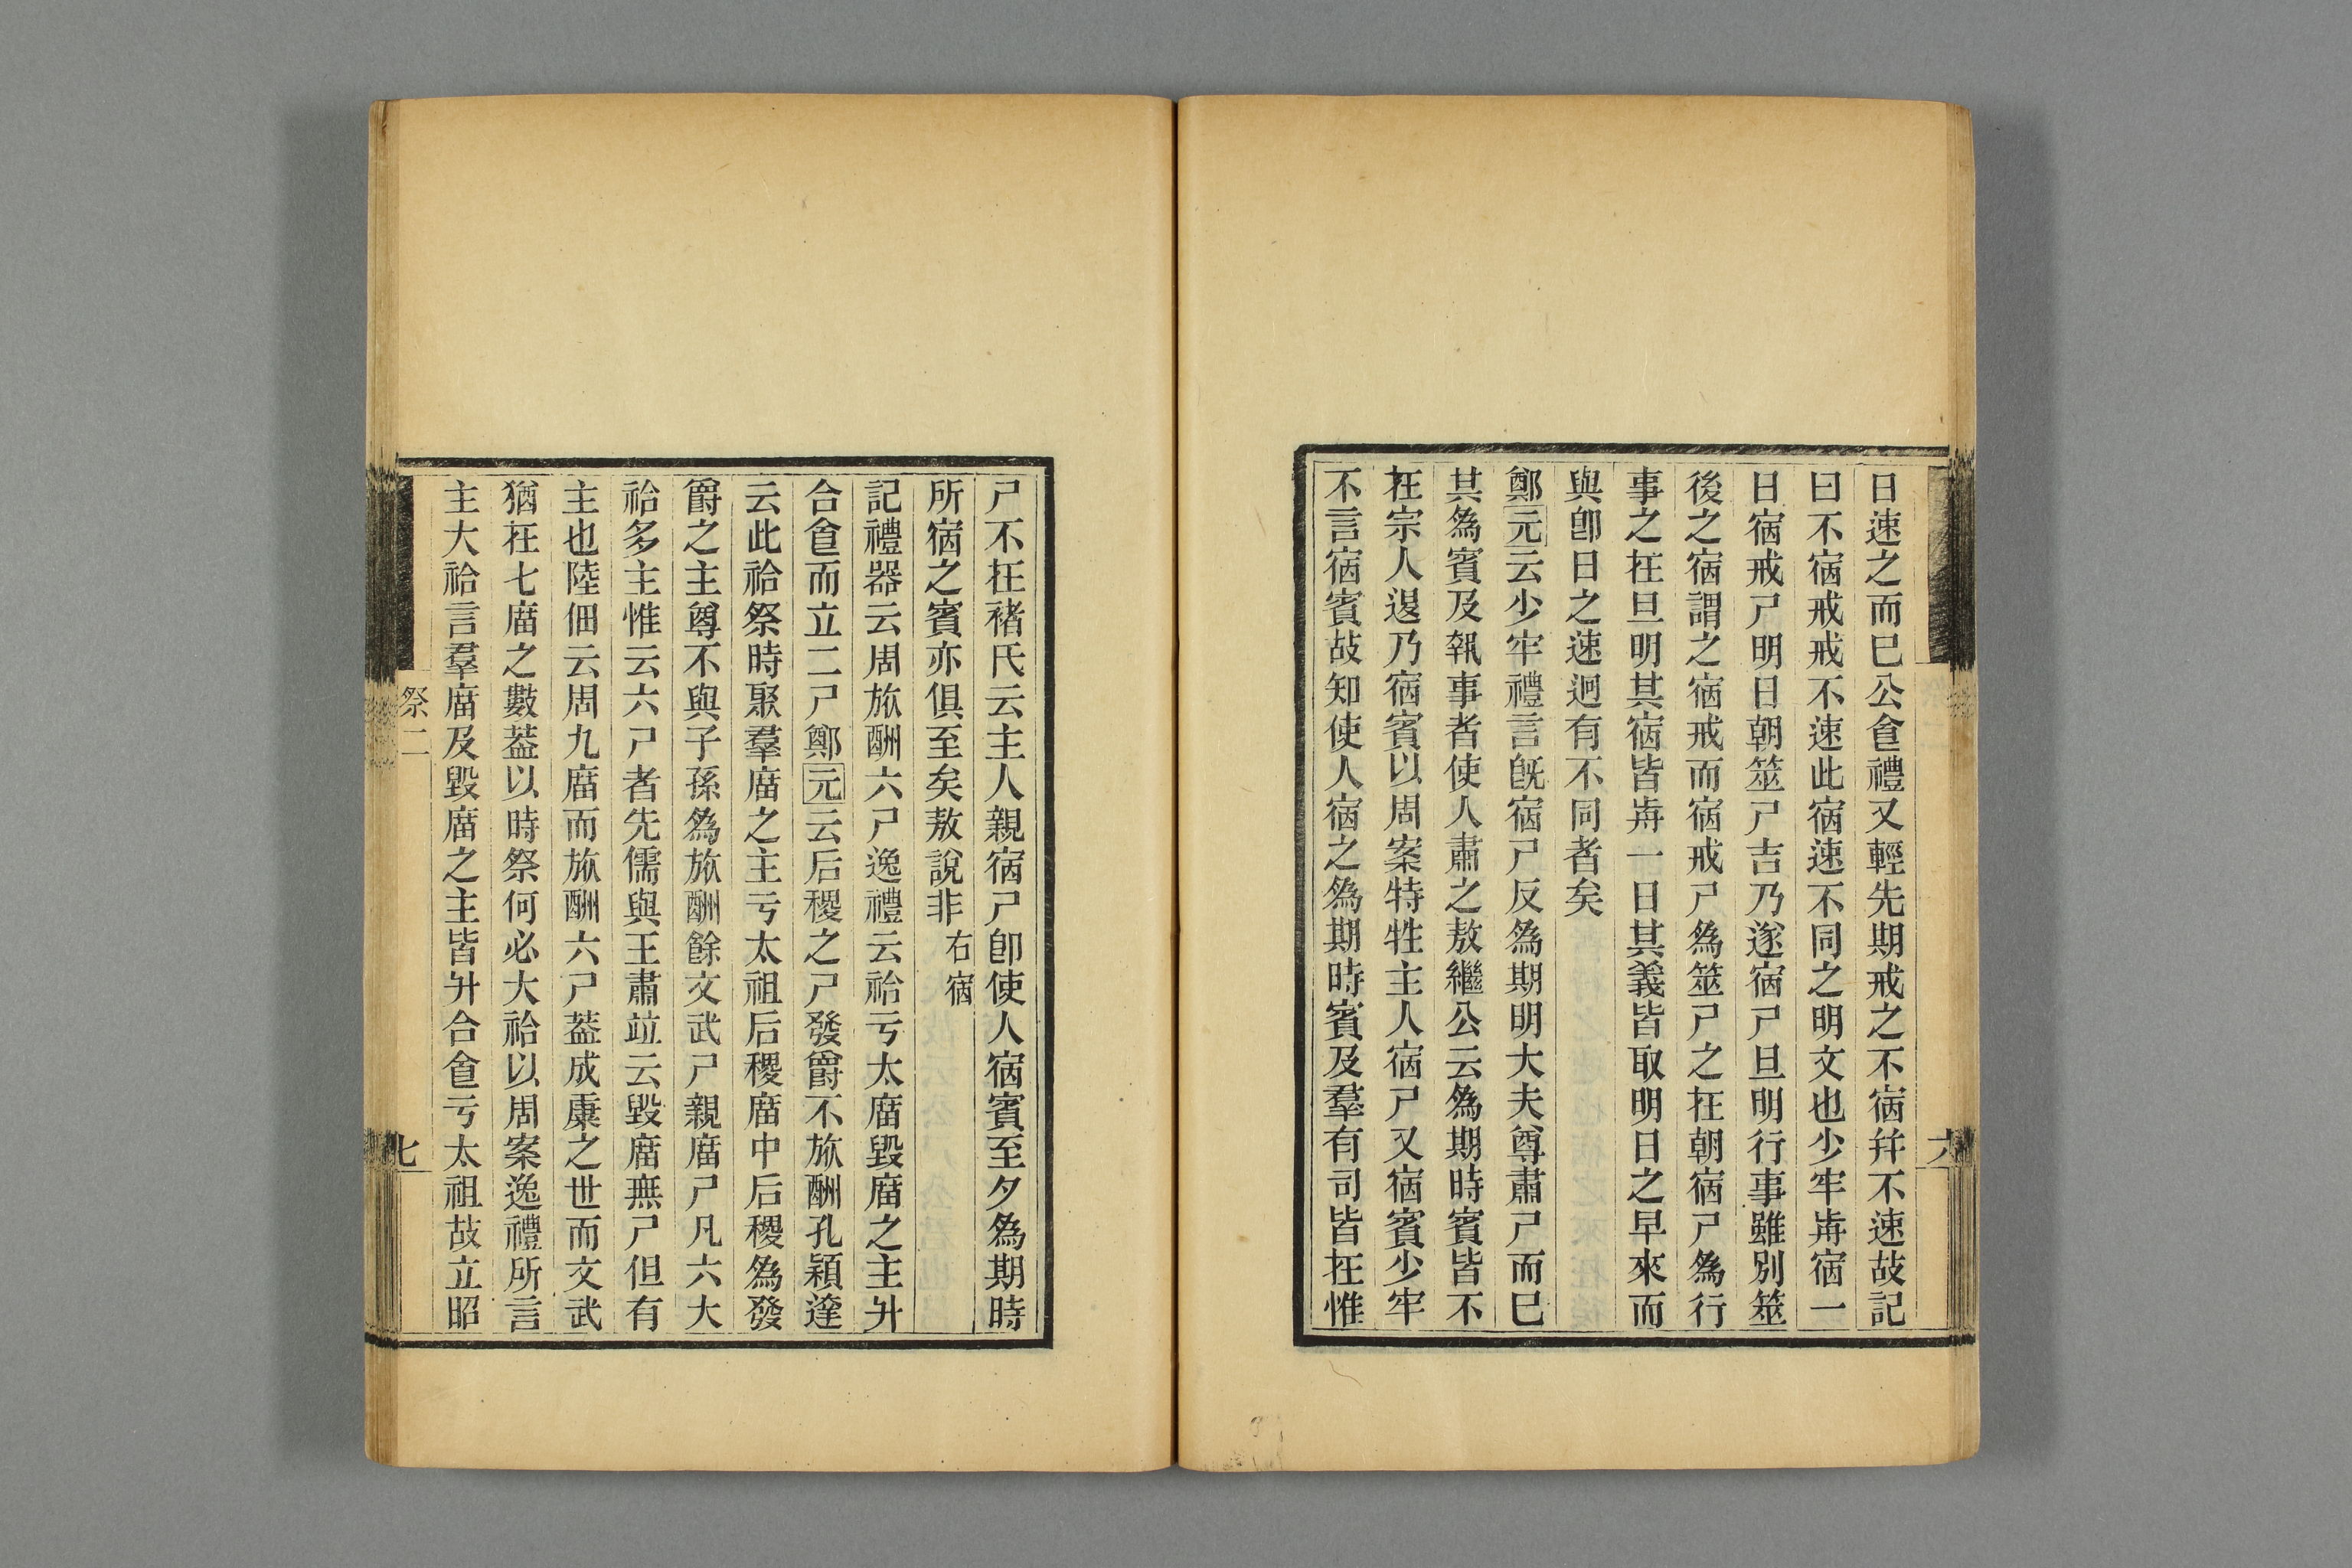 日速之而巳公𠊊禮又輕先期戒之不宿幷不速故記
曰不宿戒戒不速此宿速不同之明文也少牢歬宿一
日宿戒尸明日朝筮尸吉乃遂宿尸旦明行事雖別筮
後之宿謂之宿戒而宿戒尸爲筮尸之在朝宿尸爲行
事之在旦明其宿皆歬一日其義皆取明日之早來而
與卽日之速迥有不同者矣
鄭元云少牢禮言旣宿尸反爲期明大夫尊肅尸而巳
其爲賓及執事者使人肅之敖繼公云爲期時賓皆不
在宗人退乃宿賓以周案特牲主人宿尸又宿賓少牢
不言宿賓故知使人宿之爲期時賓及羣有司皆在惟
尸不在褚氏云主人親宿尸卽使人宿賓至夕爲期時
所宿之賓亦俱至矣敖說非右宿
記禮器云周旅酬六尸逸禮云祫于太廟毀廟之主升
合食而立二尸鄭元云后稷之尸發爵不旅酬孔穎達
云此祫祭時聚羣廟之主于太祖后稷廟中后稷爲發
爵之主尊不與子孫爲旅酬餘文武尸親廟尸凡六大
祫多主惟云六尸者先儒與王肅竝云毀廟無尸但有
主也陸佃云周九廟而旅酬六尸蓋成康之世而文武
猶在七廟之數蓋以時祭何必大祫以周案逸禮所言
主大祫言羣廟及毀廟之主皆升合食于太祖故立昭
祭二
七
六